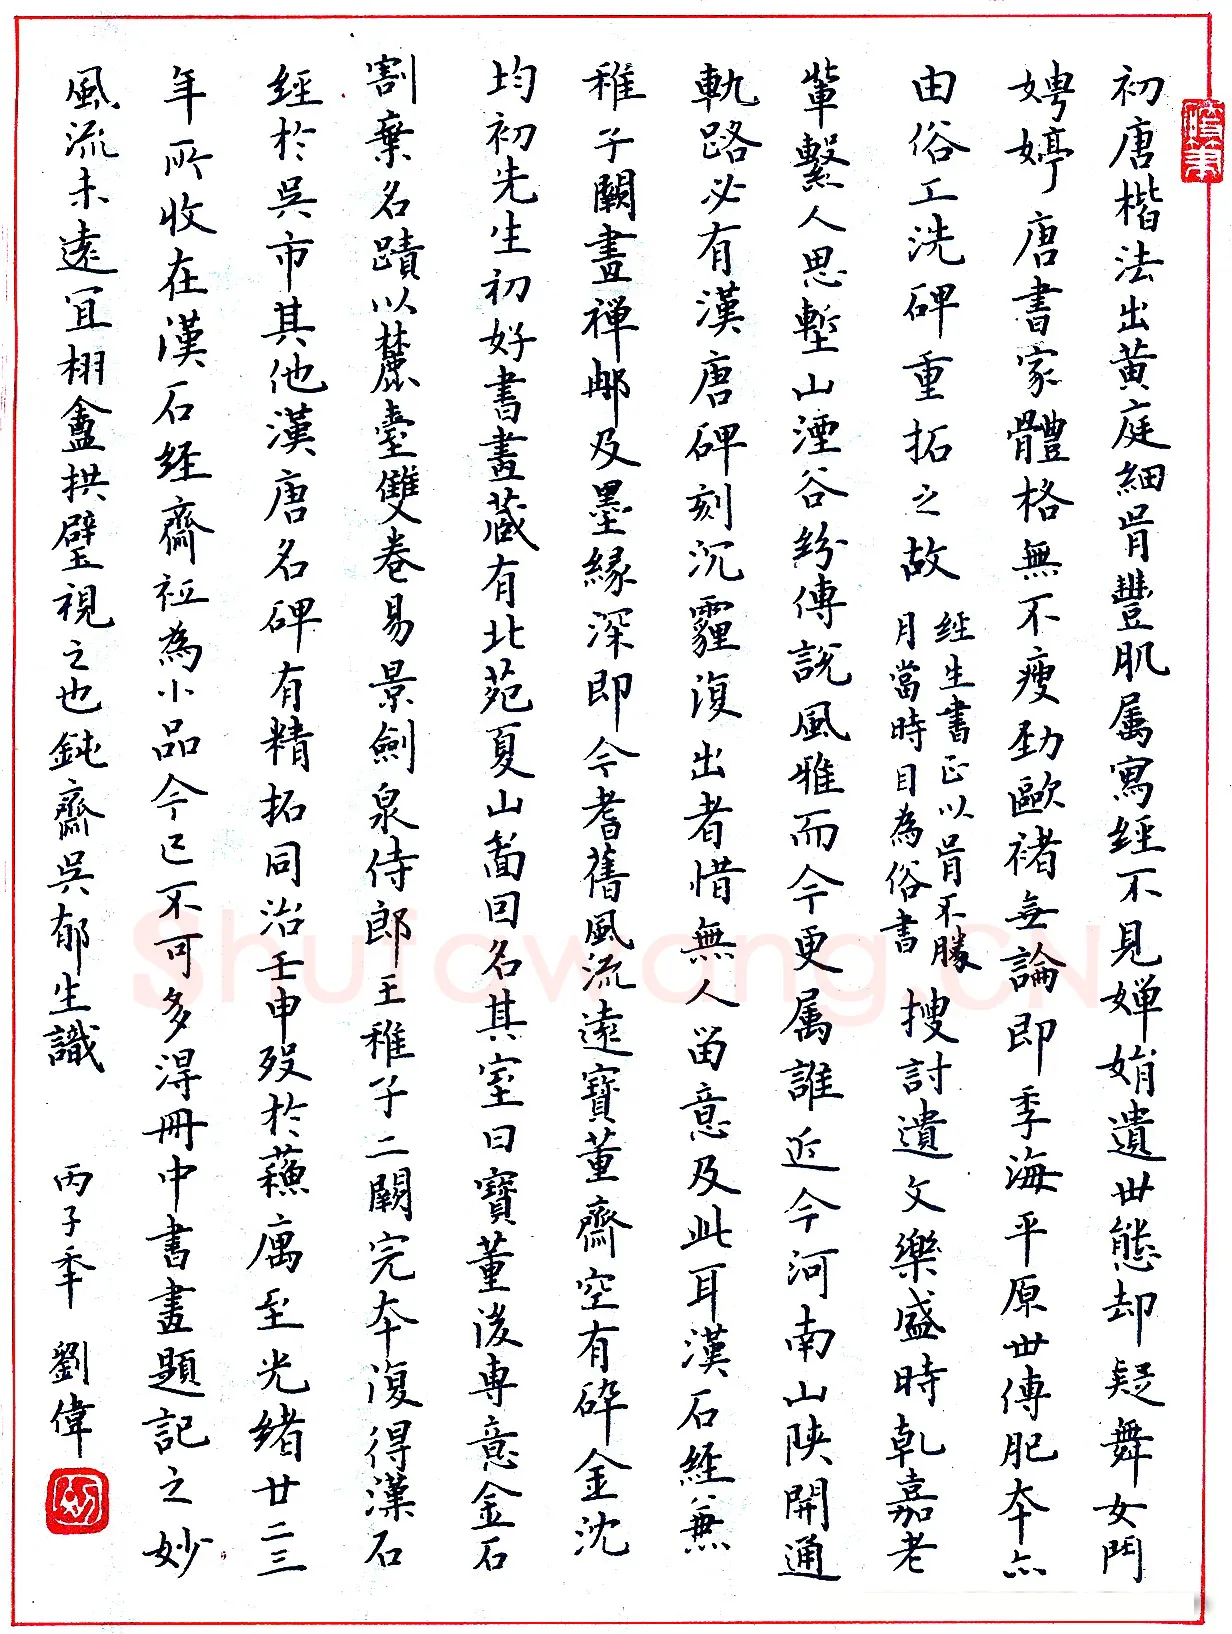 初唐楷法出黃庭細骨豐肌屬寫經不見嬋娟遺世態却疑舞女鬥
娉婷唐書家體格無不瘦勁歐褚無論即季海平原世傳肥本亦
由俗工洗碑重拓之故經生書正以骨不勝月當時目為俗書搜討遺文樂盛時乾嘉老
輩繫人思塹山湮谷紛傳說風雅而今更屬誰近今河南山陝開通
軌路必有漢唐碑刻沉霾復出者惜無人留意及此耳漢石經兼
稚子闕畫禪郵及墨緣深即今耆舊風流遠寶董齋空有碎金沈
均初先生初好書畫藏有北苑夏山圖因名其室曰寶董後專意金石
割棄名蹟以麓臺雙卷易景劍泉侍郎王稚子二闕完本復得漢石
經於吳市其他漢唐名碑有精拓同治壬申歿於蘇寓至光緒廿二三
年所收在漢石經齋衹為小品今已不可多得冊中書畫題記之妙
風流未遠宜栩盦拱璧視之也鈍齋吳郁生識
丙子年 劉偉
Shufawang.CN